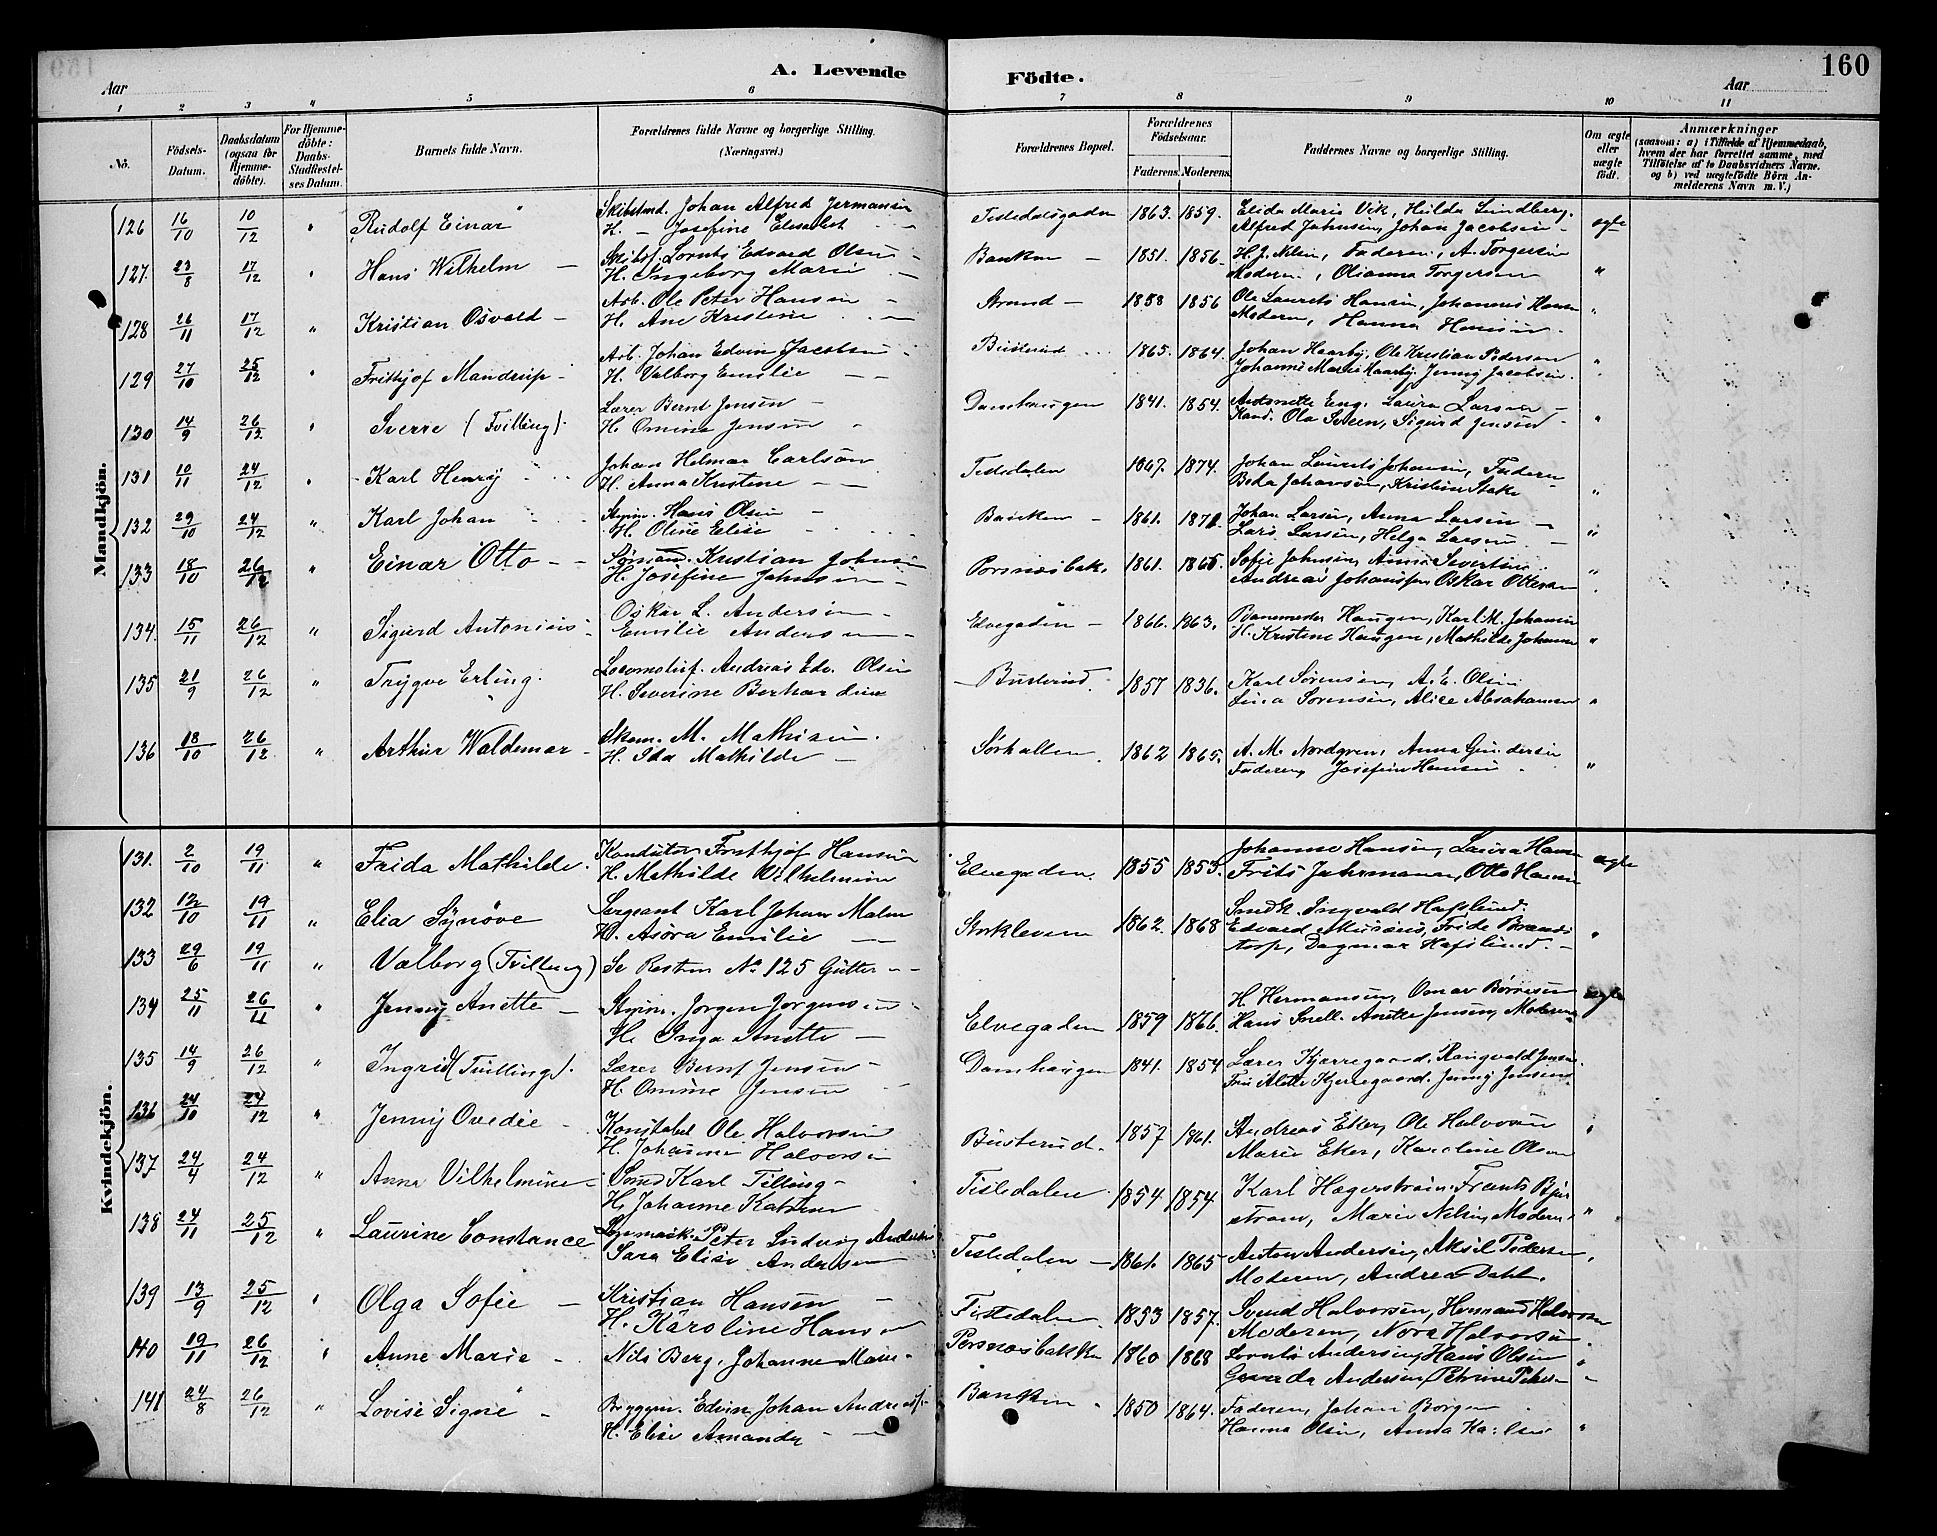 160
A. Levende Födte.
Aar Aar
1 2 3 4 5 6 7 8 9 10 11
No. Födsels-Datum. Daabsdatum (ogsaa for Hjemmedöbte). For Hjemmedöbte: Daabs-Stadfæstelses Datum. Barnets fulde Navn. Forældrenes fulde Navne og borgerlige Stilling. (Næringsvei.) Forældrenes Bopæl. Forældrenes Födselsaar. Faderens. Moderens. Faddernes Navne og borgerlige Stilling. Om ægte eller uægte födt. Anmærkninger (saasom: a) i Tilfælde af Hjemmedaab, hvem der har forrettet samme, med Tilföielse af to Daabsvidners Navne. og b) ved uægtefödte Börn Anmelderens Navn m. V.)
Mandkjön.
126 16/10 10/12 " Rudolf Einar Skibstmd. Johan Alfred Jermansen Tistedalsgaden 1863. 1859. Elida Marie Vik, Hilda Lundberg.
H. — Josefine Elisabet Alfred Johnsen, Johan Jacobsen ægte
127. 23/8 17/12 " Hans Wilhelm — Skibst. Lorents Edvard Olsen Banken — 1851. 1856. H. J. Klein, Faderen, A. Torgersen
H. Ingeborg Marie — Moderen, Olianna Torgersen "
128 26/11 17/12 " Kristian Osvald — Arb. Ole Peter Hansen — Strand — 1858 1856 Ole Laurits Hansen, Johannes Hansen
H. Ane Kristine Moderen, Hanna Hansen "
129 27/10 25/12 " Frithjof Mandrup — Arb. Johan Edvin Jacobsen Busterud 1865. 1864. Johan Haarby, Ole Kristian Pedersen
H. Valborg Emilie — — Johanne Marie Haarby, Jenny Jacobsen. "
130 14/9 26/12 " Sverre (Tvilling). Lærer Bernt Jensen — Damhaugen 1841. 1854. Antonette Eng, Laura Larsen —
H. Omine Jensen Kand. Ola Sveen, Sigurd Jensen — "
131 10/11 24/12 " Karl Henry Johan Helmar Carlson Tistedalen 1867. 1874. Johan Laurits Johansen, Faderen
H. Anna Kristine — — Beda Johanson, Kristine Stake "
132 29/10 24/12 " Karl Johan Stym. Hans Olsen — Banken — 1861. 1871. Johan Larsen, Anna Larsen —
H. Oline Elise Lars Larsen, Helga Larsen — "
133 18/10 26/12 " Einar Otto — — Sömand. Kristian Johnsen Porsnesbak. 1861. 1865. Sofie Johnsen, Anna Sivertsen
H. Josefine Johnsen — Andreas Johansen, Oskar Ottesen "
134. 15/11 26/12 " Sigurd Antonius — Oskar L. Andersen — Elvegaden — 1866. 1863. Banemester Haugen, Karl M. Johansen
Emilie Andersen — H. Kristine Haugen, Mathilde Johansen "
135 21/9 26/12 " Trygve Erling. Locomotivf. Andreas Edv. Olsen — Busterud. 1857 1836. Karl Sørensen, A. E. Olsen
H. Severine Berhardine Lina Sørensen, Alice Absahamsen "
136 18/10 26/12 " Arthur Waldemar — Ekom. M. Mathisen. Sørhallen. 1862 1865. A. M. Nordgren, Anna Gundersen
H. Ida Mathilde — Faderen, Josefine Hansen "
Kvindekjön.
131. 2/10 19/11 " Frida Mathilde. Konduktør Frithjof Hansen Elvegaden. 1855 1853. Johanne Hansen, Laura Hansen ægte
H. Mathilde Vilhelmine Frits Juhrmann, Otto Hansen
132 12/10 19/11 " Elia Synøve Sergeant Karl Johan Malm Storkleven 1862. 1868 Smdk. Ingvald Hafslund.
H. Asøra Emilie — Edvard Musæus, Fride Brandstorp, Dagmar Hafslund. — "
133 29/6 19/11 " Valborg (Tvilling) Se Resten No 125 Gutter — —
134 25/11 26/11 " Jenny Anette — Stym. Jørgen Jørgensen Elvegaden 1859 1866. H. Hermansen, Omar Børresen ægte
H. Inga Anette — Hans Snell. Anette Jensen, Moderen
135 14/9 26/12 " Ingrid (Tvilling). Lærer Bernt Jensen — Damhaugen 1841. 1854 Lærer Kjerregaard. Rangvald Jensen
H. Omine Jensen Fru Alette Kjerregaard. Jenny Jensen
136 24/10 24/12 " Jenny Ovedie — Konstabel Ole Halvorsen Busterud. 1857 1861. Andreas Eker, Ole Halvorsen
H. Johanne Halvorsen Marie Eker, Karoline Olsen
137 24/4 24/12 " Anna Vilhelmine — Smed Karl Tilling — Tistedalen. 1854 1854. Karl Hægerstrøm. Frants Björ
H. Johanne Katrine strøm, Marie Nilsen, Moderen "
138 24/11 25/12 " Laurine Constance Peter Ludvig Andersen Tistedalen — 1861. 1865 Anton Andersen, Aksel Pedersen
Sara Elise Andersen Moderen, Andrea Dahl.
139 13/9 25/12 " Olga Sofie — Kristian Hansen — Tistedalen. 1853 1857. Svend Halvorsen, Hermand Halvorsen
H. Karoline Hansen Moderen, Nora Halvorsen
140 19/11 26/12 " Anne Marie — Nils Berg, Johanne Marie — Porsnesbakken 1860 1868 Lorents Andersen, Hans Olsen
Gerda Andersen, Petrine Peters — "
141 24/8 26/12 " Lovise Signe — Bryggm. Edvin Johan Andreas Banken 1850 1864. Faderen, Johan Borgen
H. Elise Amanda — — Hanna Olsen, Anna Karlsen "